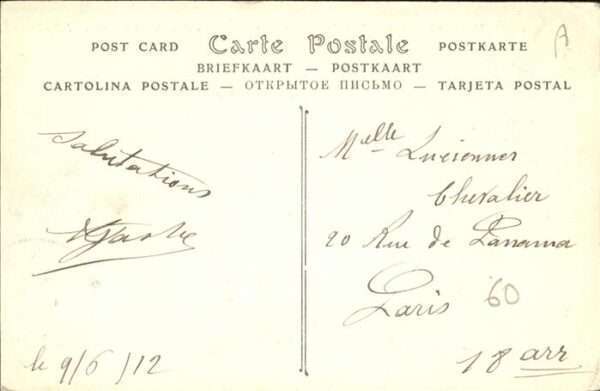 POST CARD Carte Postale POSTKARTE
BRIEFKAART — POSTKAART
CARTOLINA POSTALE — ОТКРЫТОЕ ПИСЬМО — TARJETA POSTAL
A
Salutations
le 9/6/12
Melle
Chevalier
20 Rue de Panama
Paris 60
18 arr